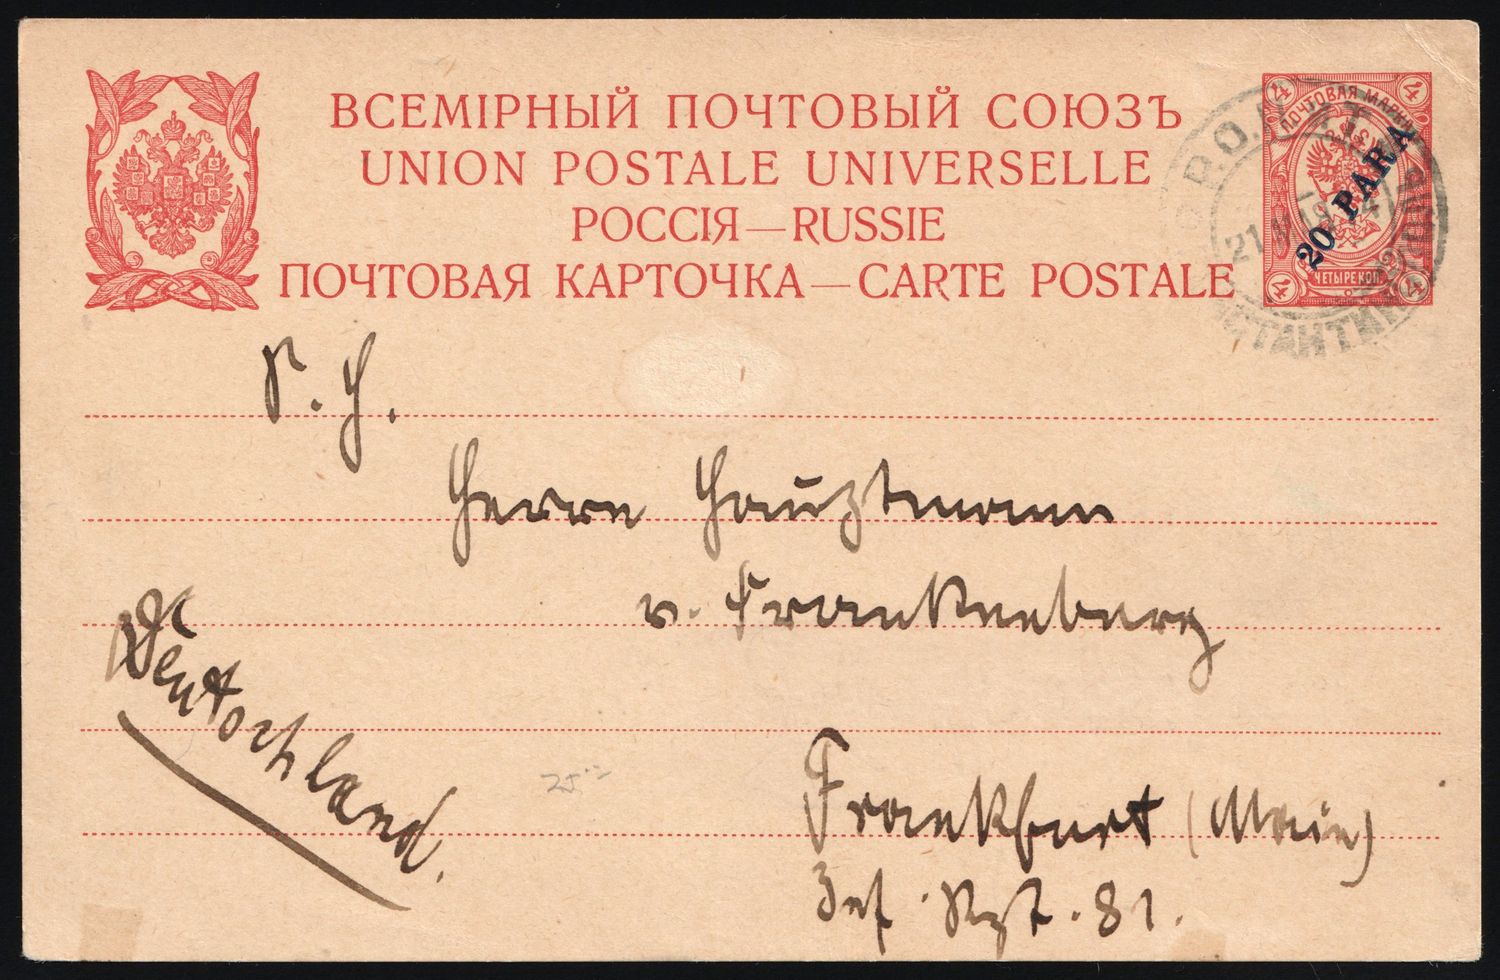 ВСЕМІРНЫЙ ПОЧТОВЫЙ СОЮЗЪ
UNION POSTALE UNIVERSELLE
РОССІЯ—RUSSIE
ПОЧТОВАЯ КАРТОЧКА—CARTE POSTALE
4 4
ПОЧТОВАЯ МАРКА
20 PARA
ЧЕТЫРЕ КОП.
4 4
S. H.
Herrn Hauptmann
v. Frankenberg
Deutschland.
Frankfurt (Main)
Inf. Rgt. 81.